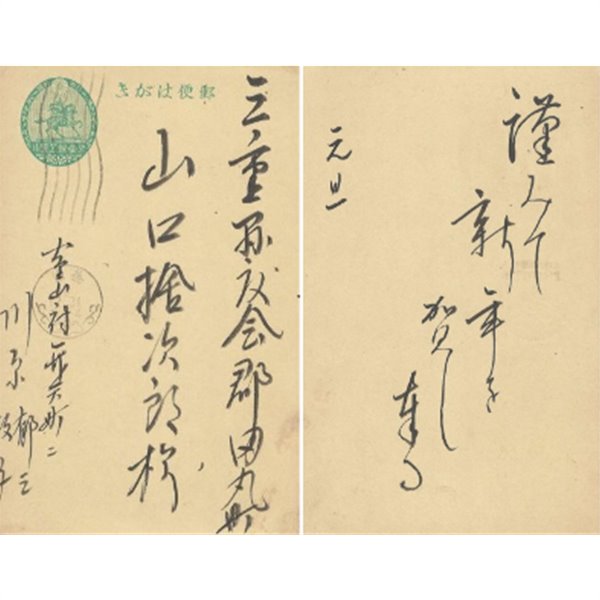 郵便はがき
三重県度会郡田丸町
山口捨次郎様
川原
郁三
謹みて
新年を
賀し
奉る
元旦